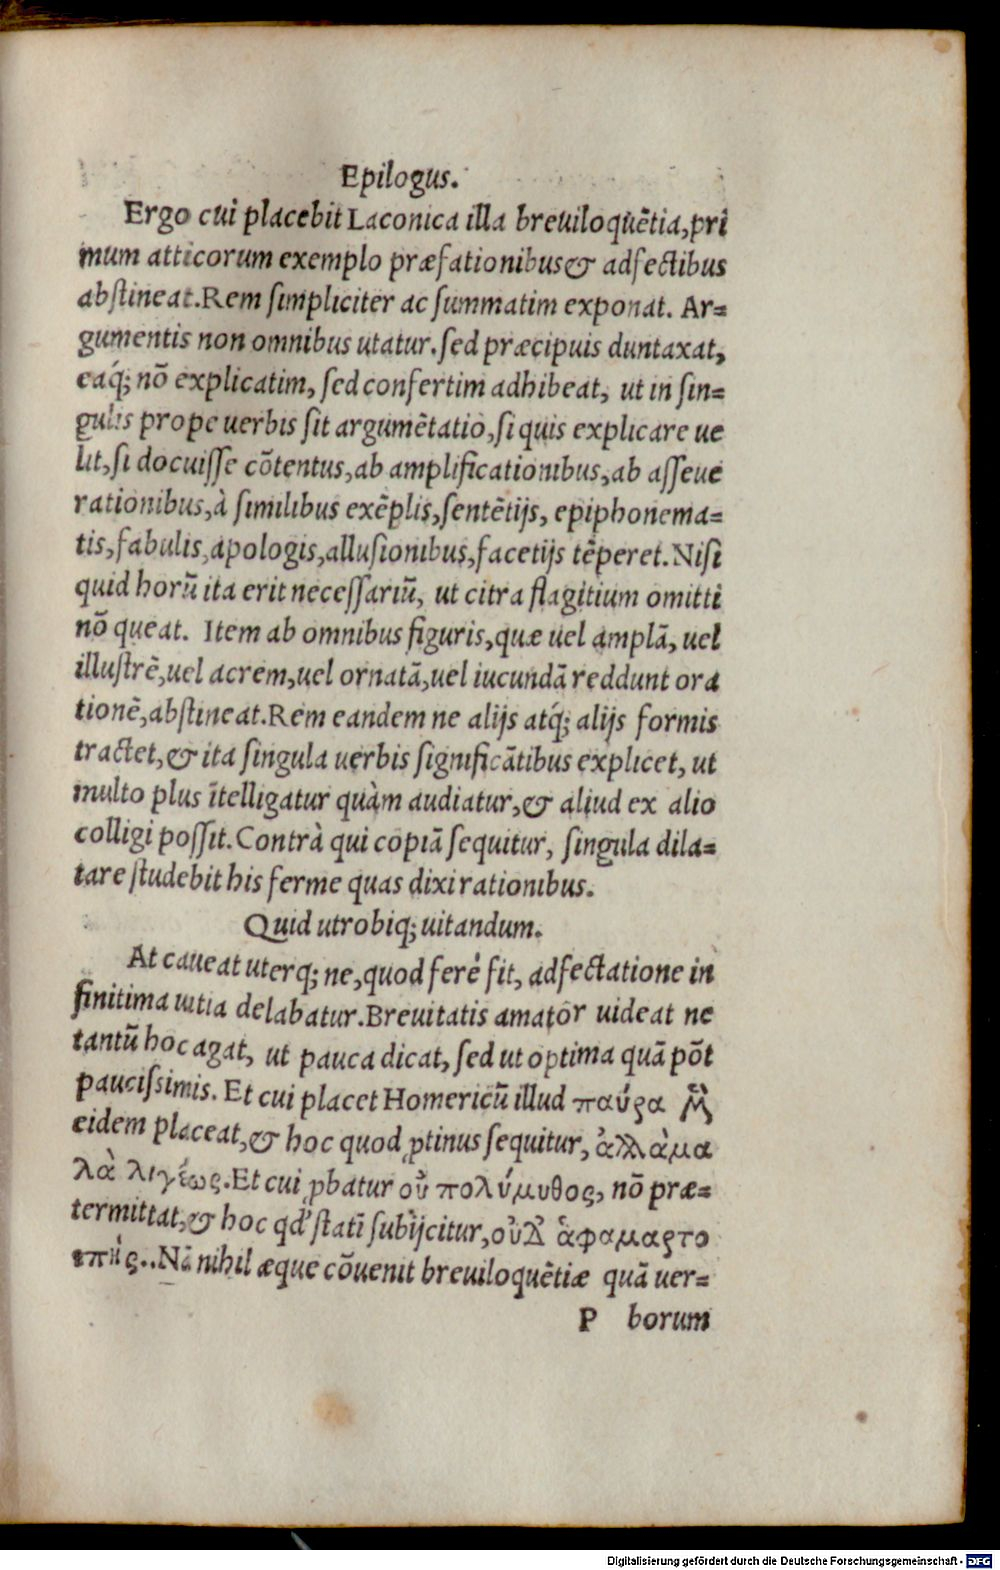 Epilogus.
Ergo cui placebit Laconica illa breuiloquẽtia, pri
mum atticorum exemplo præfationibus & adfectibus
abstineat. Rem simpliciter ac summatim exponat. Ar=
gumentis non omnibus utatur. sed præcipuis duntaxat,
eaq́; nõ explicatim, sed confertim adhibeat, ut in sin=
gulis prope uerbis sit argumẽtatio, si quis explicare ue
lit, si docuisse cõtentus, ab amplificationibus, ab asseue
rationibus, à similibus exẽplis, sentẽtijs, epiphonema=
tis, fabulis, apologis, allusionibus, facetijs tẽperet. Nisi
quid horũ ita erit necessariũ, ut citra flagitium omitti
nõ queat. Item ab omnibus figuris, quæ uel amplã, uel
illustrẽ, uel acrem, uel ornatã, uel iucundã reddunt ora
tionẽ, abstineat. Rem eandem ne alijs atq́; alijs formis
tractet, & ita singula uerbis significãtibus explicet, ut
multo plus ĩtelligatur quàm audiatur, & aliud ex alio
colligi possit. Contrà qui copiã sequitur, singula dila=
tare studebit his ferme quas dixi rationibus.
Quid utrobiq; uitandum.
At caueat uterq; ne, quod ferè fit, adfectatione in
finitima uitia delabatur. Breuitatis amator uideat ne
tantũ hoc agat, ut pauca dicat, sed ut optima quã põt
paucissimis. Et cui placet Homericũ illud παῦρα μὲν
eidem placeat, & hoc quod ꝓtinus sequitur, ἀλλὰ μα
λὰ λιγέως. Et cui ꝓbatur οὐ πολύμυθος, nõ præ=
termittat, & hoc qd' statĩ subijcitur, οὐδ' ἀφαμαρτο
επής.. Nã nihil æque cõuenit breuiloquẽtiæ quã uer=
P borum
Digitalisierung gefördert durch die Deutsche Forschungsgemeinschaft - DFG